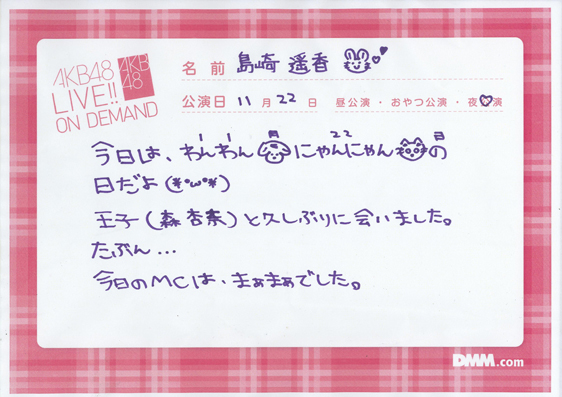 AKB48
LIVE!!
ON DEMAND
AKB
48
名前 島崎 遥香
公演日 11月22日 昼公演・おやつ公演・夜公演
1 1 月 22 日
今日は、わんわん にゃんにゃん の
日だよ(*・ω・*)
王子(森杏奈)と久しぶりに会いました。
たぶん...
今日のMCは、まぁまぁでした。
DMM.com